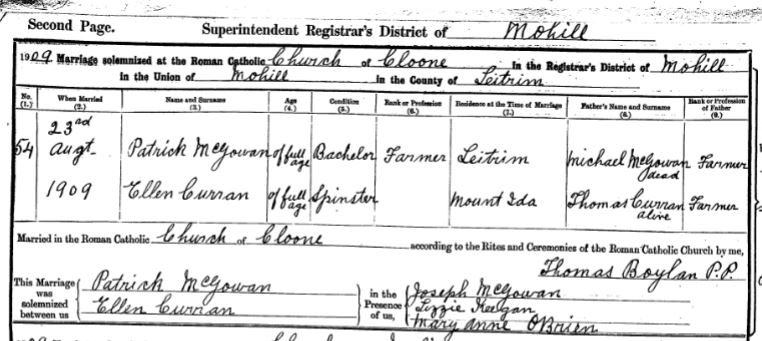 Second Page. Superintendent Registrar's District of Mohill
1909. Marriage solemnized at the Roman Catholic Church of Cloone in the Registrar's District of Mohill
in the Union of Mohill in the County of Leitrim
No. When Married Name and Surname Age Condition Rank or Profession Residence at the Time of Marriage Father's Name and Surname Rank or Profession of Father
(1.) (2.) (3.) (4.) (5.) (6.) (7.) (8.) (9.)
54 23rd Augt. 1909 Patrick McGowan of full age Bachelor Farmer Leitrim Michael McGowan dead Farmer
Ellen Curran of full age Spinster Mount Ida Thomas Curran alive Farmer
Married in the Roman Catholic Church of Cloone according to the Rites and Ceremonies of the Roman Catholic Church by me,
Thomas Boylan P.P.
This Marriage was solemnized between us
Patrick McGowan
Ellen Curran
in the Presence of us,
Joseph McGowan
Lizzie Keegan
Mary Anne O'Brien